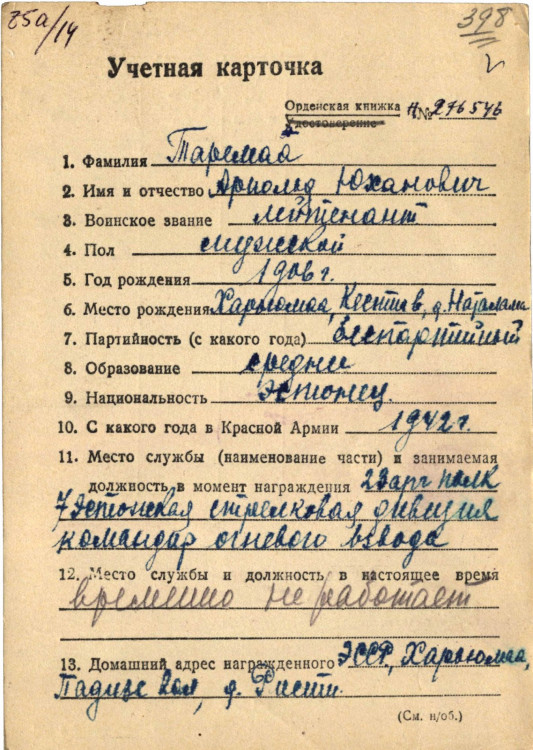 25а/14
398
Учетная карточка
Орденская книжка
Удостоверение
Н № 276546
1. Фамилия Таремаа
2. Имя и отчество Арнольд Юханович
3. Воинское звание лейтенант
4. Пол мужской
5. Год рождения 1906 г.
6. Место рождения Харьюмаа, д.
7. Партийность (с какого года) беспартийный
8. Образование средни
9. Национальность Эстонец.
10. С какого года в Красной Армии 1942 г.
11. Место службы (наименование части) и занимаемая
должность в момент награждения 23 арт полк
7 Эстонская стрелковая дивизия
командир огневого взвода
12. Место службы и должность в настоящее время
временно не работает
13. Домашний адрес награжденного ЭССР, Харьюмаа,
Падизе вол, д.
(См. н/об.)